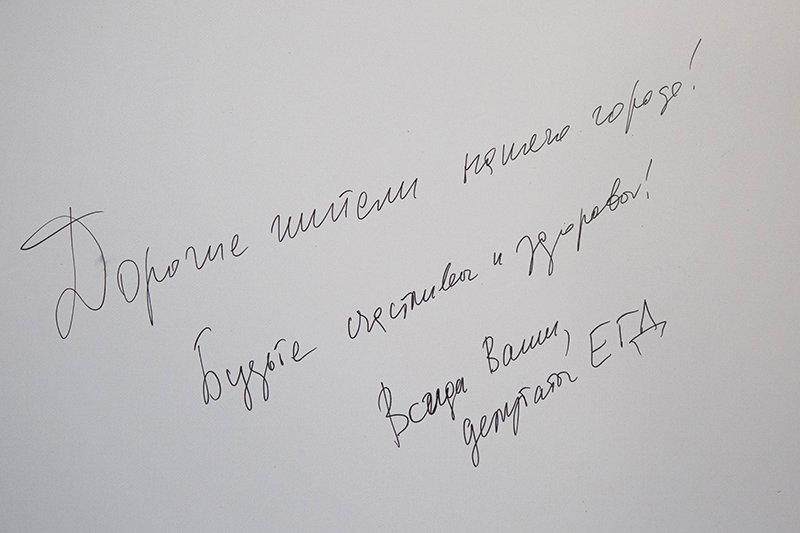 Дорогие жители нашего города!
Будьте счастливы и здоровы!
Всегда Ваши,
депутаты ЕГД